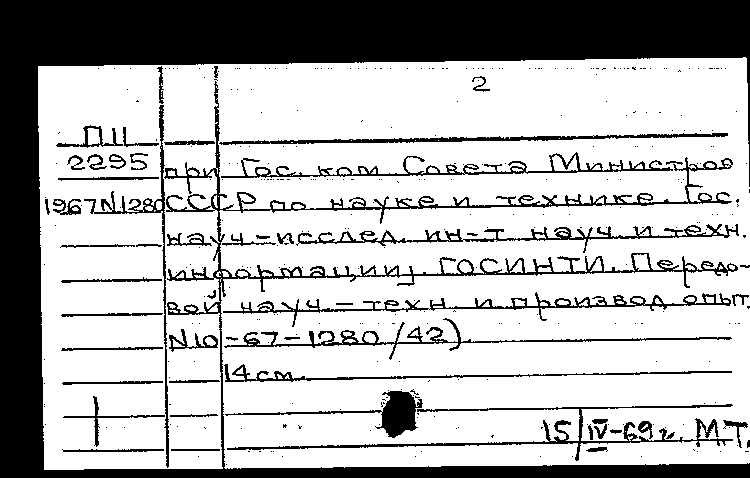 2
П11
2295 при Гос. ком Совета Министров
1967N1280 СССР по науке и технике. Гос.
науч-исслед. ин-т науч. и техн.
информации]. ГОСИНТИ. Передо-
вой науч-техн. и производ. опыт.
N10-67-1280/42).
14 см.
15/IV-69г. М.Т.